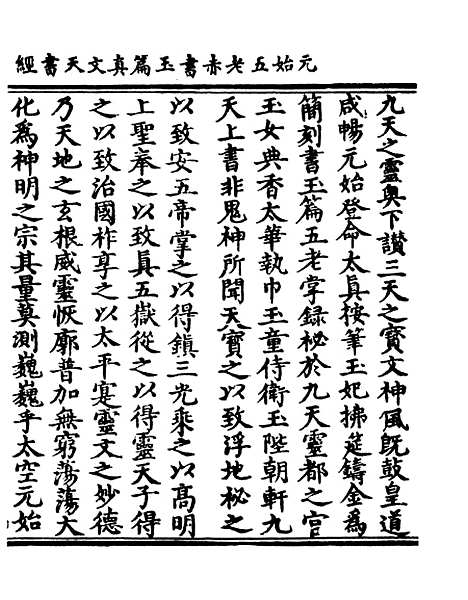 元始五老赤書玉篇真文天書經
九天之靈奧下讃三天之寳文神風旣鼓皇道
咸暢元始登命太眞按筆玉妃拂筵鑄金爲
簡刻書玉篇五老掌録秘於九天靈都之宫
玉女典香太華執巾玉童侍衛玉陛朝軒九
天上書非鬼神所聞天寳之以致浮地秘之
以致安五帝掌之以得鎮三光乘之以高明
上聖奉之以致眞五嶽從之以得靈天子得
之以致治國祚享之以太平寔靈文之妙德
乃天地之玄根威靈恢廓普加無窮蕩蕩大
化爲神明之宗其量莫測巍巍乎太空元始